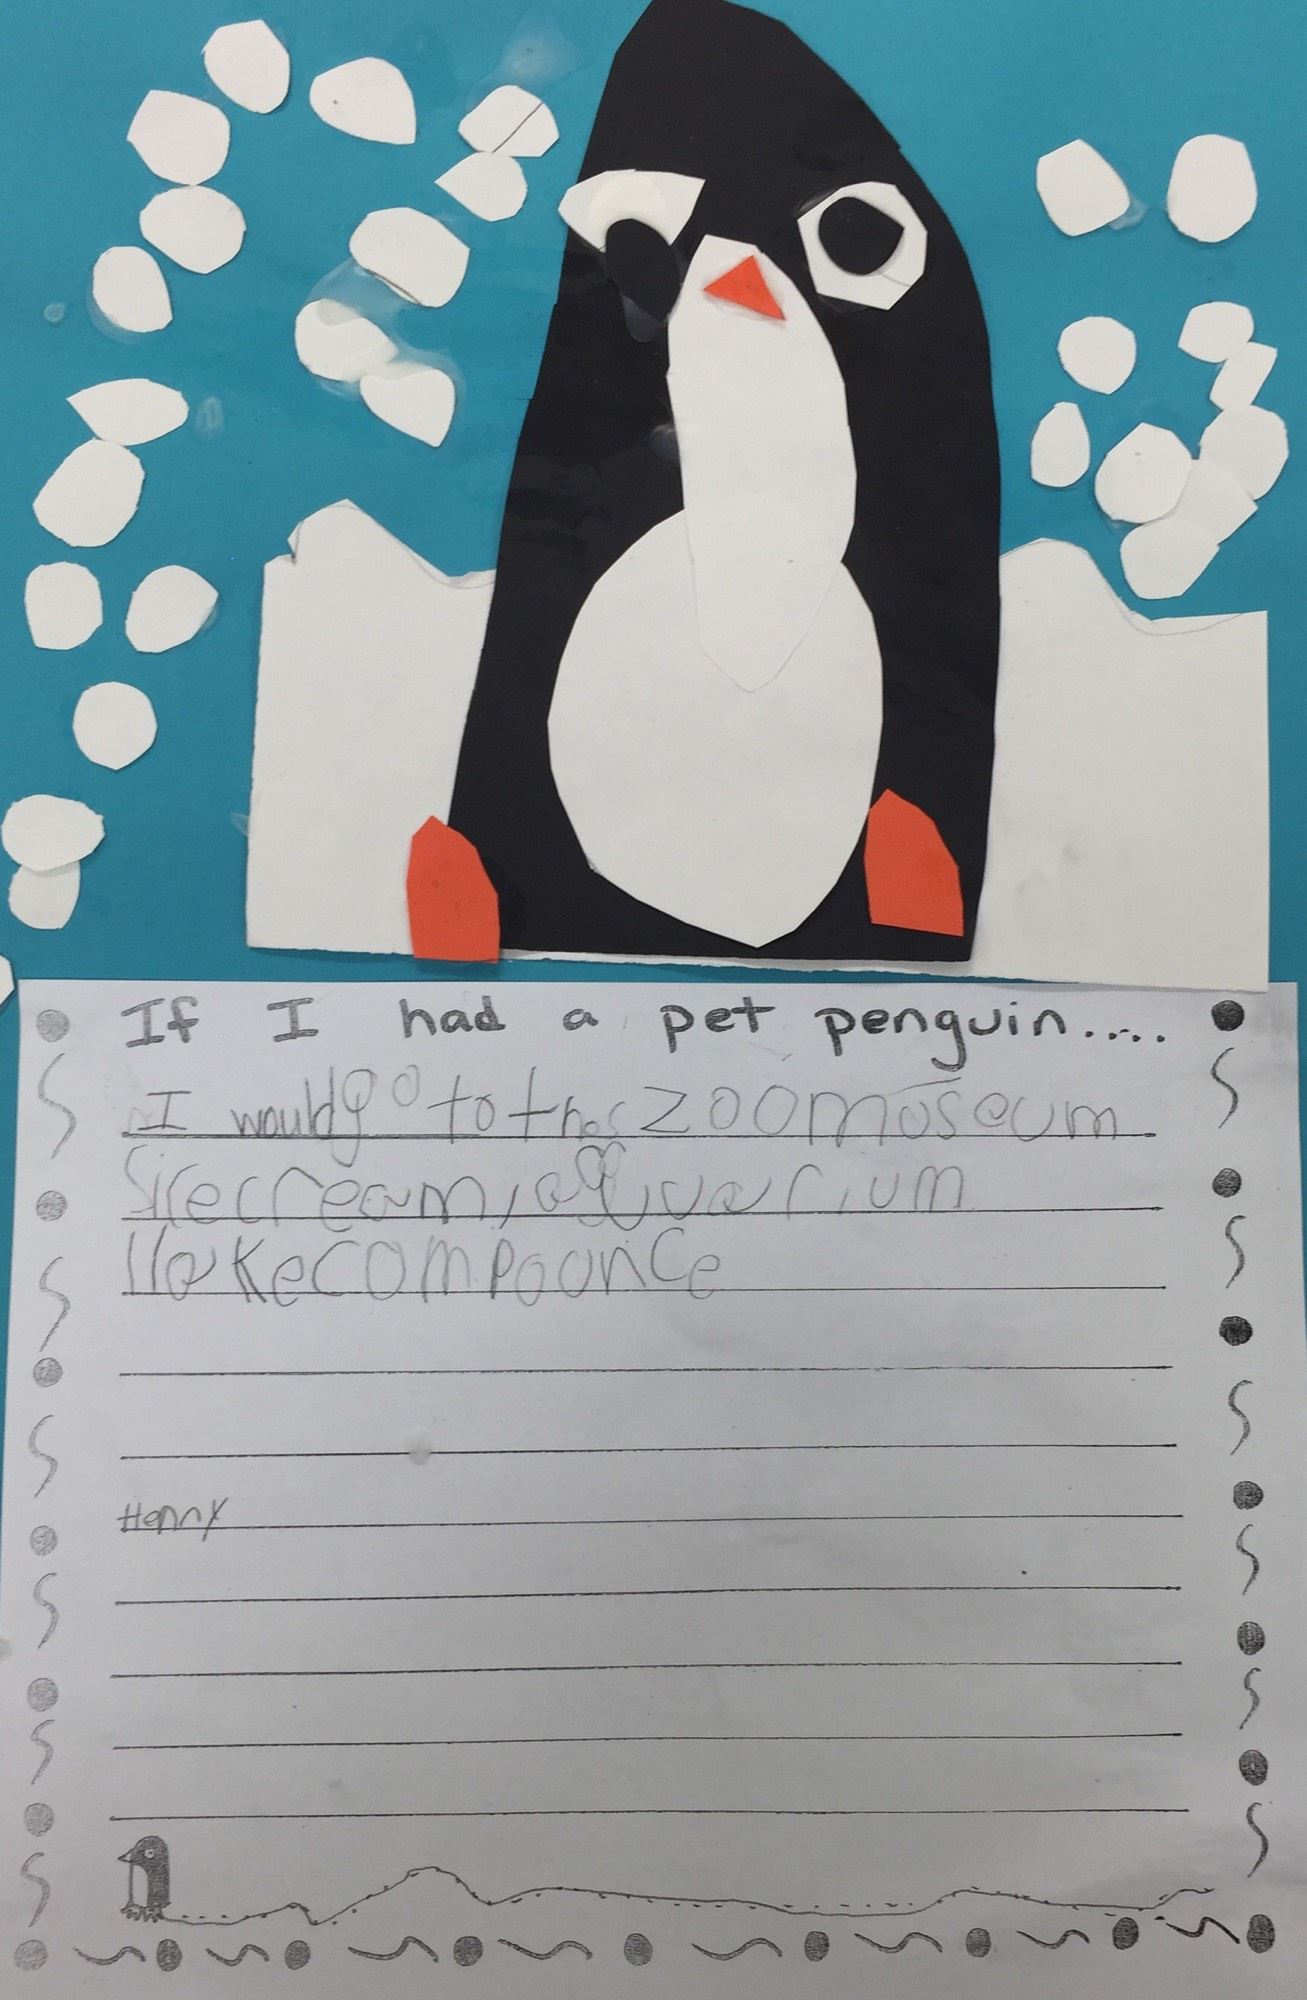 If I had a pet penguin....
I would go to the zoo moseum
icecream, aqquarium
lakecompounce
Henry